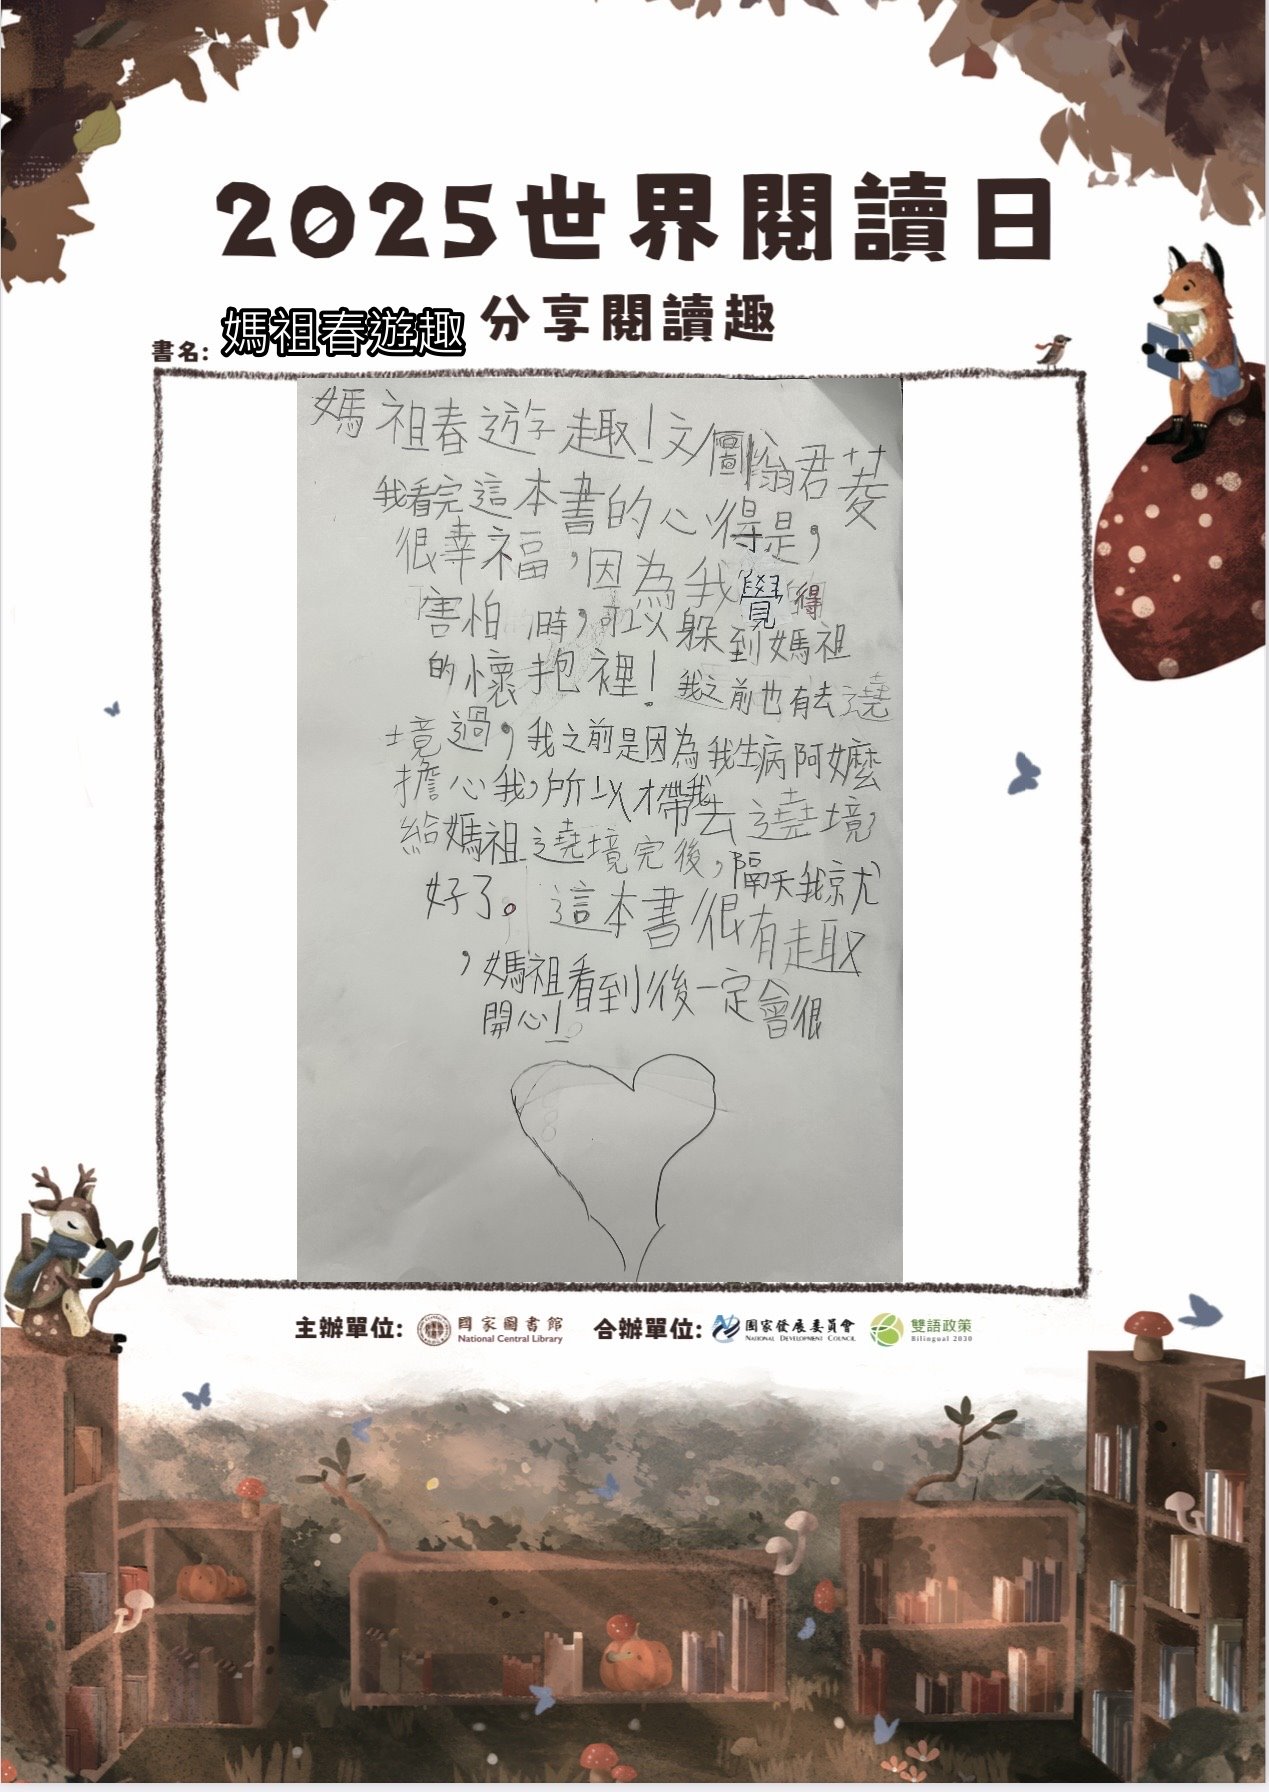 2025世界閱讀日
媽祖春遊趣 分享閱讀趣
書名:
媽祖春遊趣！文圖翁君菱
我看完這本書的心得是，
很幸福，因為我覺得
害怕時，可以躲到媽祖
的懷抱裡！我之前也有去遶
境過，我之前是因為我生病阿嬤
擔心我，所以才帶我去遶境，
給媽祖遶境完後，隔天我就
好了。這本書很有趣
，媽祖看到後一定會很
開心！
主辦單位: 國家圖書館 National Central Library 合辦單位: 國家發展委員會 NATIONAL DEVELOPMENT COUNCIL 雙語政策 Bilingual 2030